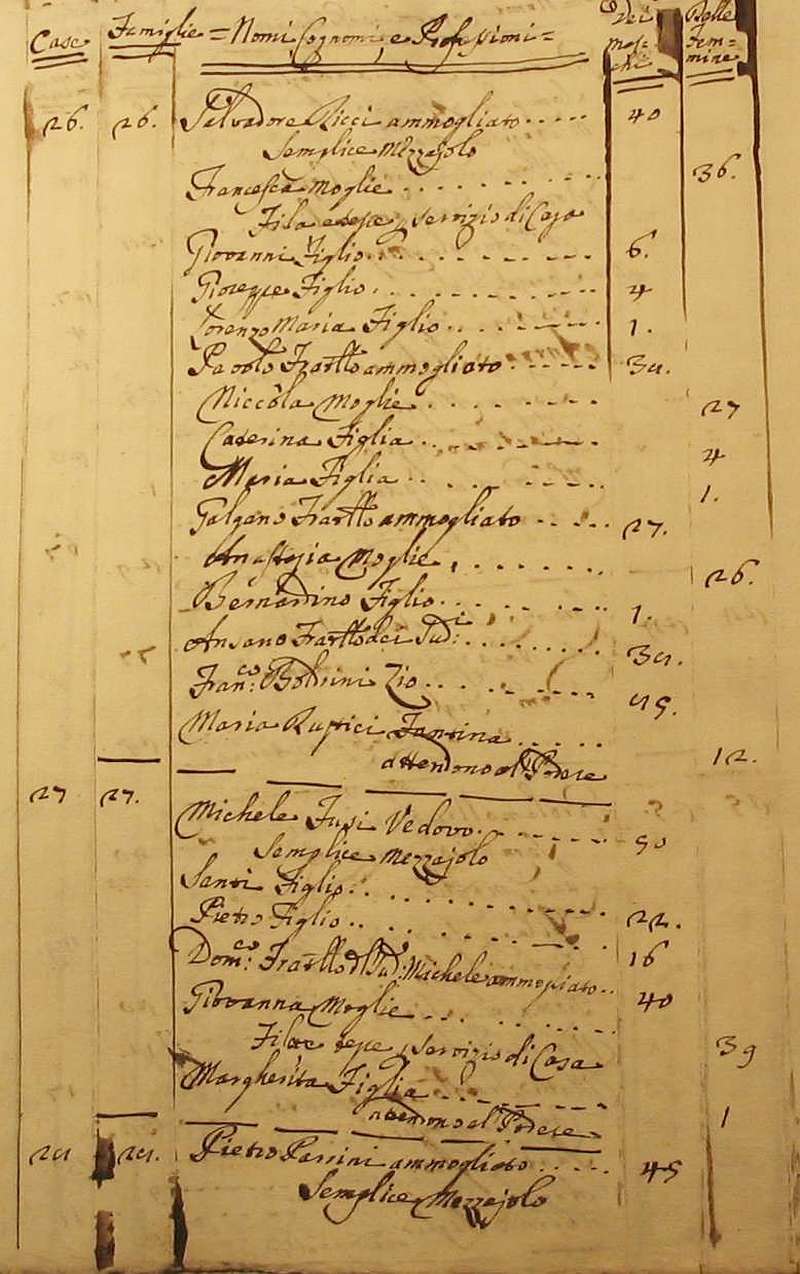 Case Famiglie = Nomi, Cognomi, e Professioni = Dei Maschi Delle Femmine
26. 26. Salvadore Ricci ammogliato 40
Semplice Mezzajolo
Francesca Moglie 36.
Fila e tesse, e servizio di Casa
Giovanni Figlio 6.
Giuseppe Figlio 4
Lorenzo Maria Figlio 1.
Paolo Fratello ammogliato 38.
Niccola Moglie 27
Caterina Figlia 4
Maria Figlia 1.
Galgano Fratello ammogliato 27.
Anastasia Moglie 26.
Bernardino Figlio 1.
Ansano Frattello dei Sud:i 38.
Fran:co Boldrini Zio
Maria Rustici Fantina 12.
attendono al Podere
27 27. Michele Fusi Vedovo 50
Semplice Mezzajolo
Santi Figlio 22.
Pietro Figlio 16
Dom:co Frattello di Sud: Michele ammogliato 40
Giovanna Moglie 39
Fila e tesse, e servizio di Casa
Margherita Figlia 1
attendono al Podere
28 28. Pietro Parrini ammogliato 45
Semplice Mezzajolo